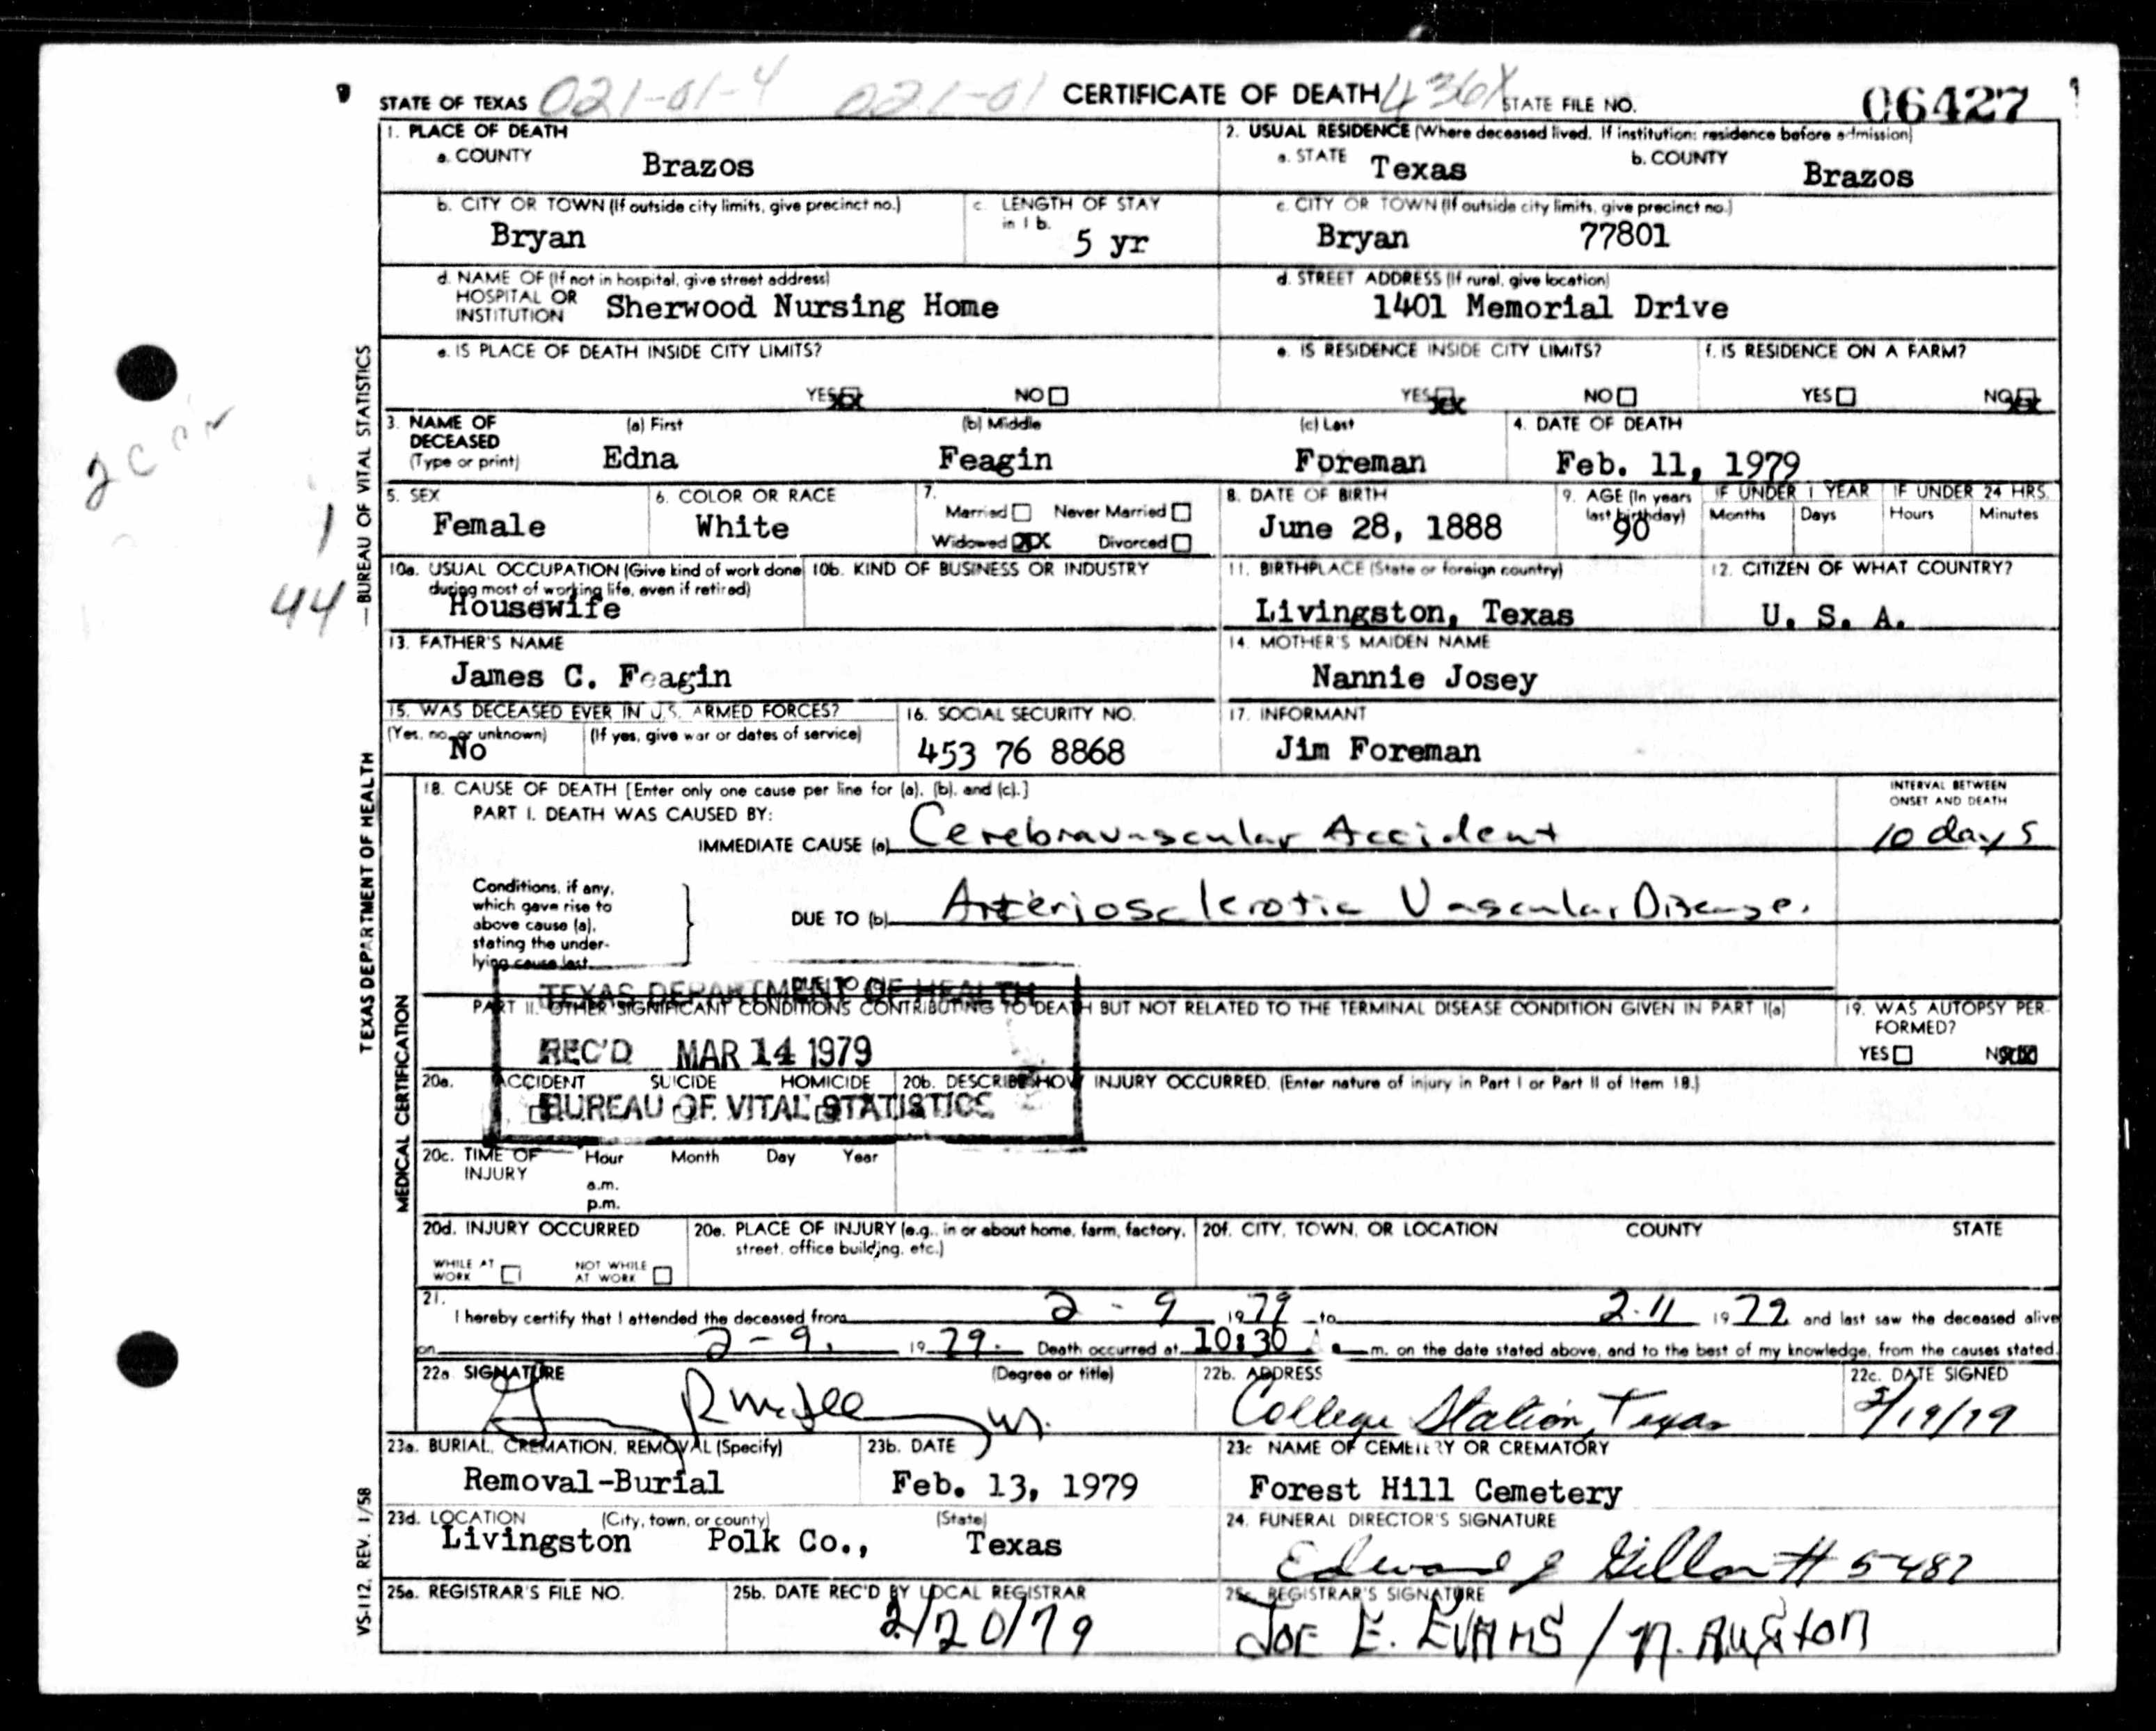 STATE OF TEXAS 021-01-4 021-01 CERTIFICATE OF DEATH 436X STATE FILE NO. 06427
1. PLACE OF DEATH
a. COUNTY Brazos
2. USUAL RESIDENCE (Where deceased lived. If institution: residence before admission)
a. STATE Texas b. COUNTY Brazos
b. CITY OR TOWN (If outside city limits, give precinct no.) Bryan
c. LENGTH OF STAY in 1 b. 5 yr
c. CITY OR TOWN (If outside city limits, give precinct no.)
Bryan 77801
d. NAME OF (If not in hospital, give street address)
HOSPITAL OR
INSTITUTION Sherwood Nursing Home
d. STREET ADDRESS (If rural, give location)
1401 Memorial Drive
e. IS PLACE OF DEATH INSIDE CITY LIMITS?
YES XX NO
e. IS RESIDENCE INSIDE CITY LIMITS?
YES XX NO
f. IS RESIDENCE ON A FARM?
YES NO XX
3. NAME OF DECEASED (Type or print)
(a) First Edna
(b) Middle Feagin
(c) Last Foreman
4. DATE OF DEATH
Feb. 11, 1979
5. SEX
Female
6. COLOR OR RACE
White
7. Married Never Married
Widowed XX Divorced
8. DATE OF BIRTH
June 28, 1888
9. AGE (In years last birthday) 90
IF UNDER 1 YEAR Months Days
IF UNDER 24 HRS. Hours Minutes
10a. USUAL OCCUPATION (Give kind of work done during most of working life, even if retired)
Housewife
10b. KIND OF BUSINESS OR INDUSTRY
11. BIRTHPLACE (State or foreign country)
Livingston, Texas
12. CITIZEN OF WHAT COUNTRY?
U. S. A.
13. FATHER'S NAME
James C. Feagin
14. MOTHER'S MAIDEN NAME
Nannie Josey
15. WAS DECEASED EVER IN U.S. ARMED FORCES?
(Yes, no, or unknown) No (If yes, give war or dates of service)
16. SOCIAL SECURITY NO.
453 76 8868
17. INFORMANT
Jim Foreman
18. CAUSE OF DEATH [Enter only one cause per line for (a), (b), and (c).]
PART I. DEATH WAS CAUSED BY:
IMMEDIATE CAUSE (a) Cerebravascular Accident
INTERVAL BETWEEN
ONSET AND DEATH
10 days
Conditions, if any,
which gave rise to
above cause (a),
stating the under-
lying cause last.
DUE TO (b) Arteriosclerotic Vascular Disease.
DUE TO
TEXAS DEPARTMENT OF HEALTH
REC'D MAR 14 1979
BUREAU OF VITAL STATISTICS
PART II. OTHER SIGNIFICANT CONDITIONS CONTRIBUTING TO DEATH BUT NOT RELATED TO THE TERMINAL DISEASE CONDITION GIVEN IN PART I(a)
19. WAS AUTOPSY PER-
FORMED?
YES NO XX
20a. ACCIDENT SUICIDE HOMICIDE
20b. DESCRIBE HOW INJURY OCCURRED. (Enter nature of injury in Part I or Part II of Item 18.)
20c. TIME OF INJURY Hour Month Day Year
a.m.
p.m.
20d. INJURY OCCURRED
WHILE AT WORK NOT WHILE AT WORK
20e. PLACE OF INJURY (e.g., in or about home, farm, factory, street, office building, etc.)
20f. CITY, TOWN, OR LOCATION COUNTY STATE
21.
I hereby certify that I attended the deceased from 2-9 1979 to 2-11 1979 and last saw the deceased alive
on 2-9, 1979. Death occurred at 10:30 A m. on the date stated above, and to the best of my knowledge, from the causes stated.
22a. SIGNATURE (Degree or title)
22b. ADDRESS
College Station, Texas
22c. DATE SIGNED
2/19/79
23a. BURIAL, CREMATION, REMOVAL (Specify)
Removal-Burial
23b. DATE
Feb. 13, 1979
23c. NAME OF CEMETERY OR CREMATORY
Forest Hill Cemetery
23d. LOCATION (City, town, or county) (State)
Livingston Polk Co., Texas
24. FUNERAL DIRECTOR'S SIGNATURE
Edward J Dillon # 5487
25a. REGISTRAR'S FILE NO.
25b. DATE REC'D BY LOCAL REGISTRAR
2/20/79
25c. REGISTRAR'S SIGNATURE
JOE E. EVANS / N. Auston
TEXAS DEPARTMENT OF HEALTH — BUREAU OF VITAL STATISTICS
MEDICAL CERTIFICATION
VS-112, REV. 1/58
1
44